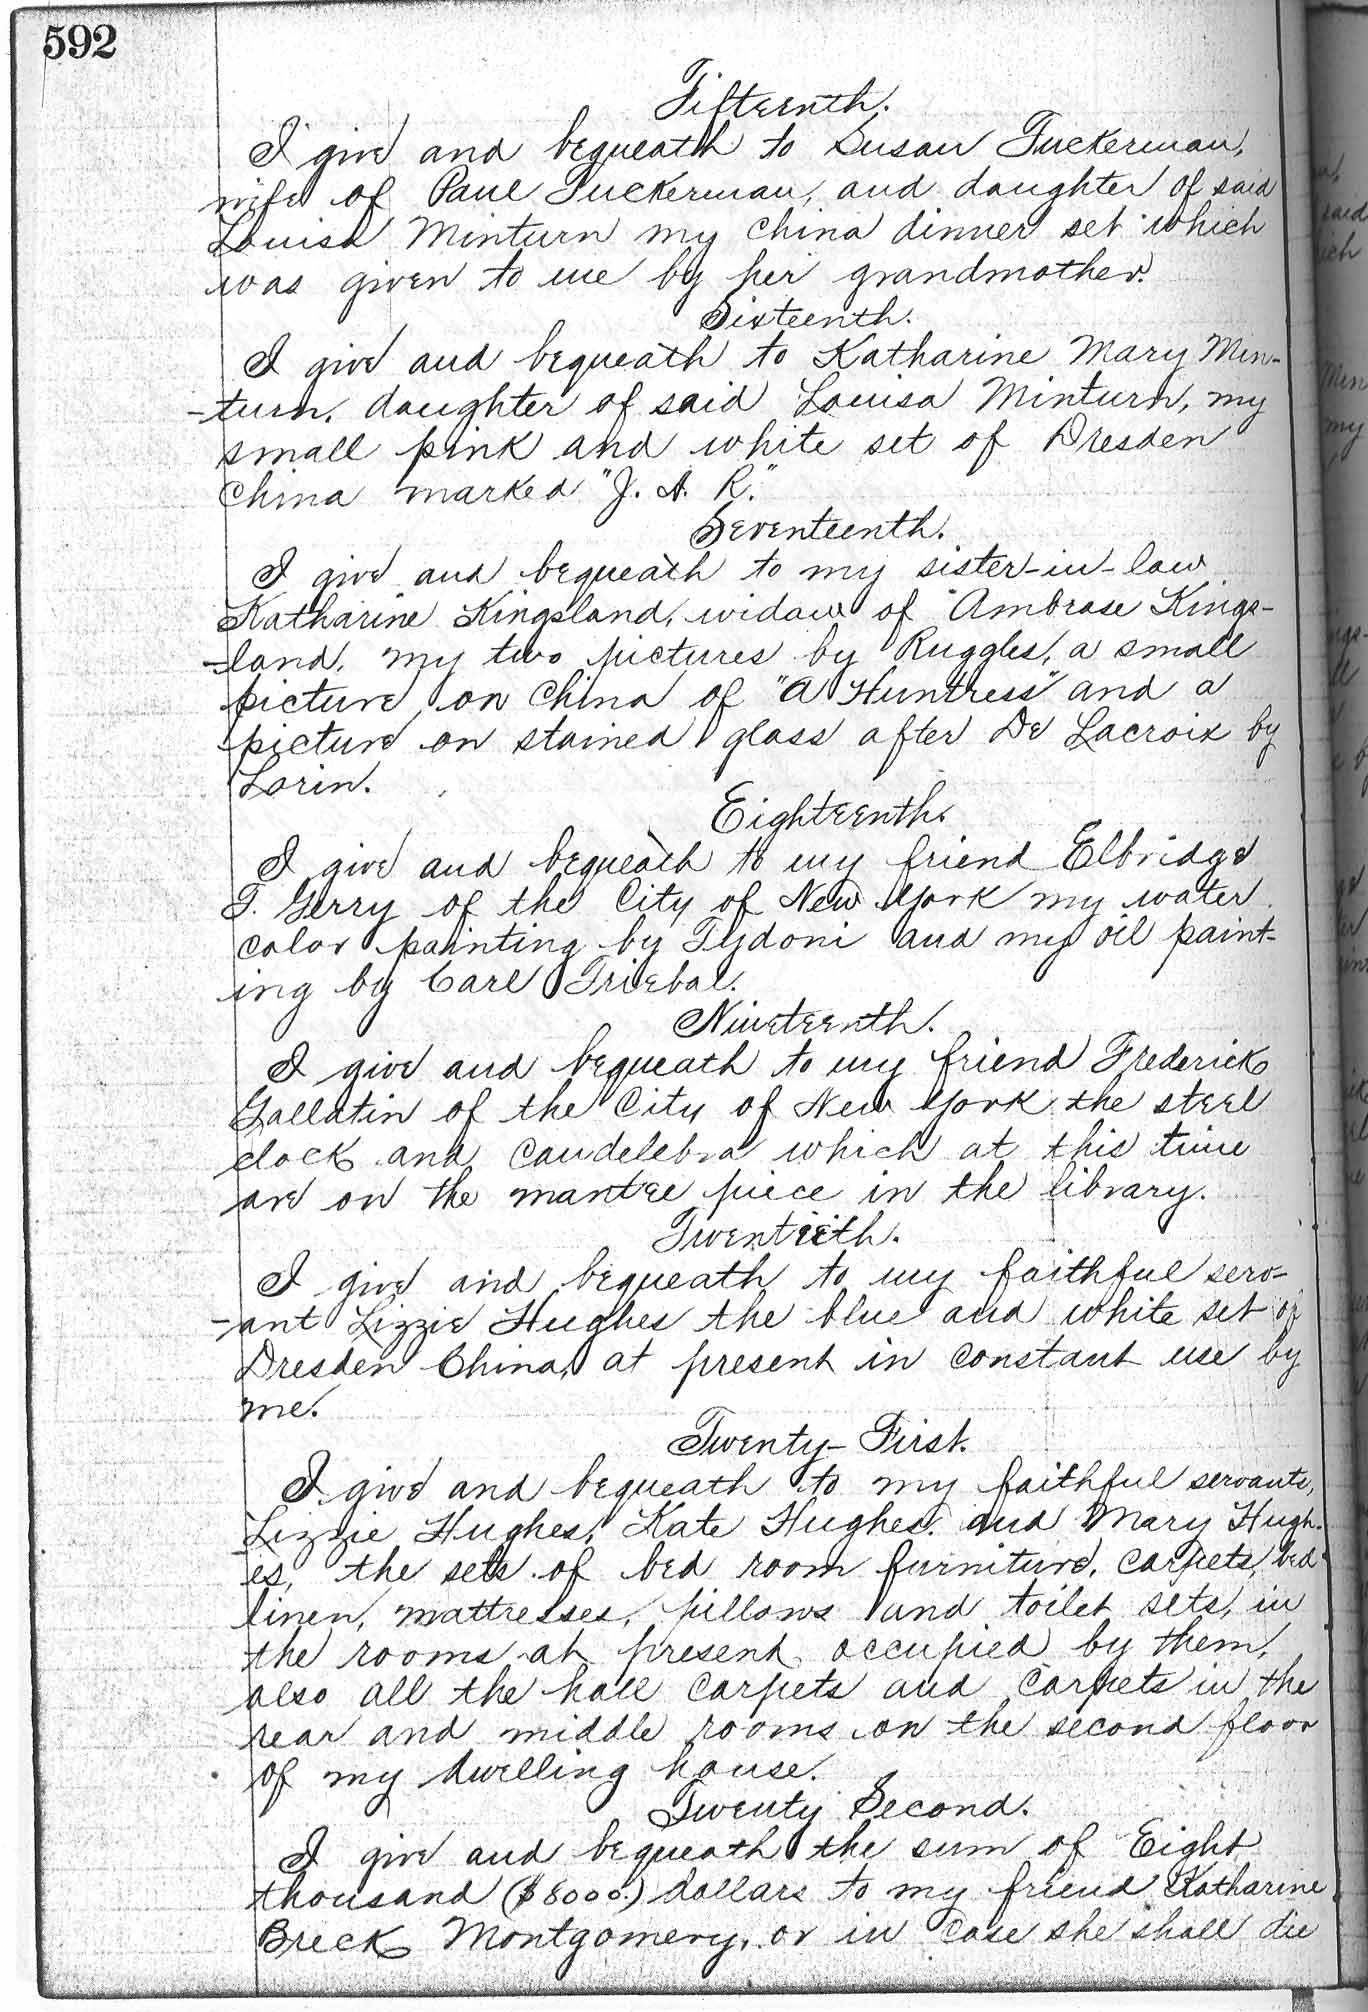 592
Fifteenth.
I give and bequeath to Susan Tuckerman,
wife of Paul Tuckerman, and daughter of said
Louisa Minturn my china dinner set which
was given to me by her grandmother.
Sixteenth.
I give and bequeath to Katharine Mary Min-
-turn, daughter of said Louisa Minturn, my
small pink and white set of Dresden
China marked "J. A. R."
Seventeenth.
I give and bequeath to my sister-in-law
Katharine Kingsland, widow of Ambrose Kings-
-land, my two pictures by Ruggles, a small
picture on China of "A Huntress" and a
picture on stained glass after De Lacroix by
Lorin.
Eighteenth.
I give and bequeath to my friend Elbridge
T. Gerry of the City of New York my water
color painting by Tydoni and my oil paint-
ing by Carl Triebal.
Nineteenth.
I give and bequeath to my friend Frederick
Gallatin of the City of New York the steel
clock and candelebra which at this time
are on the mantel piece in the library.
Twentieth.
I give and bequeath to my faithful serv-
-ant Lizzie Hughes the blue and white set of
Dresden China, at present in constant use by
me.
Twenty-First.
I give and bequeath to my faithful servants,
Lizzie Hughes, Kate Hughes, and Mary Hugh-
es, the sets of bed room furniture, carpets, bed
linen, mattresses, pillows and toilet sets, in
the rooms at present occupied by them,
also all the hall carpets and carpets in the
rear and middle rooms on the second floor
of my dwelling house.
Twenty Second.
I give and bequeath the sum of Eight
thousand ($8000.) dollars to my friend Katharine
Breck Montgomery, or in case she shall die